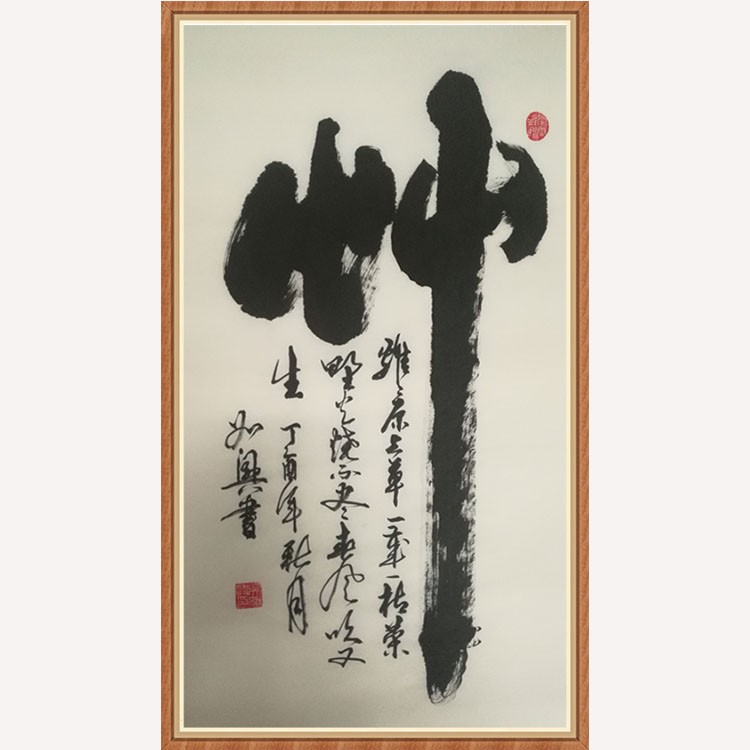 艸
離々原上草一歲一枯榮
野火燒不盡春風吹又
生 丁酉年秋月
如興書